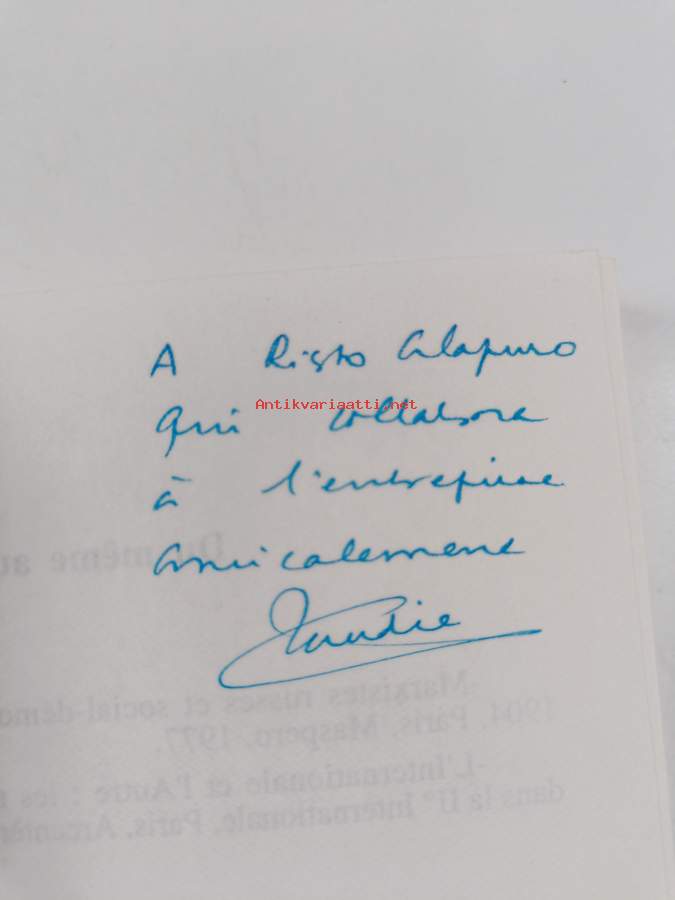 A Risto Alapuro
Antikvariaatti.net
qui collabora
à l'entreprise
amicalement
Claudie
Du même au
-Marxistes russes et social-démo
1904, Paris, Maspero, 1977.
-L'Internationale et l'Autre : les
dans la IIᵉ Internationale, Paris, Arcantère